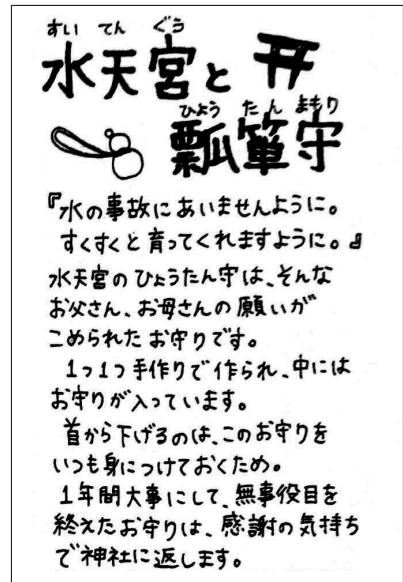 すい てん ぐう
水天宮と
ひょう たん まもり
瓢箪守
『水の事故にあいませんように。
すくすくと育ってくれますように。』
水天宮のひょうたん守は、そんな
お父さん、お母さんの願いが
こめられたお守りです。
1つ1つ手作りで作られ、中には
お守りが入っています。
首から下げるのは、このお守りを
いつも身につけておくため。
1年間大事にして、無事役目を
終えたお守りは、感謝の気持ち
で神社に返します。